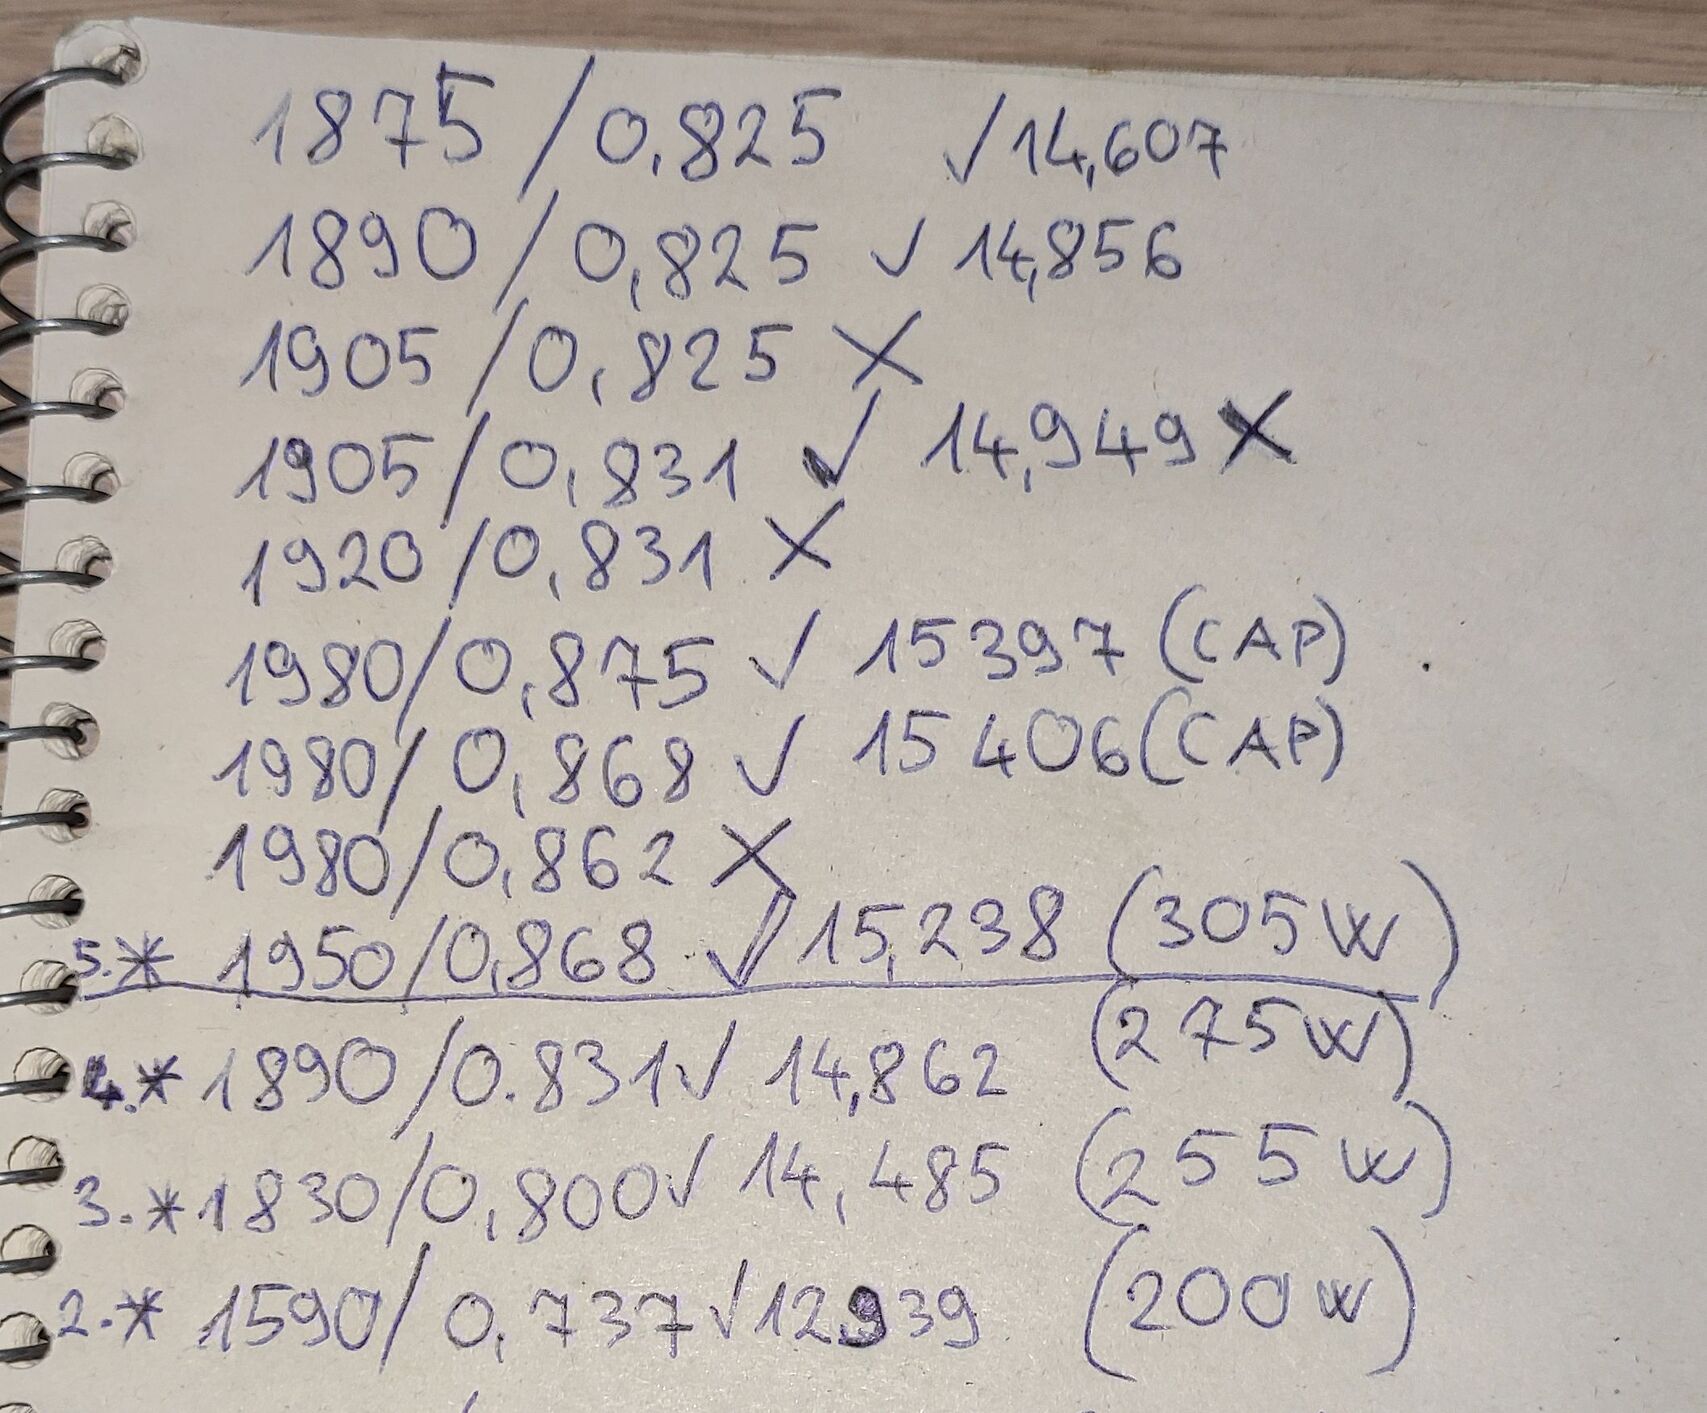 1875/0,825 ✓14,607
1890/0,825 ✓ 14,856
1905/0,825 X
1905/0,831 ✓ 14,949 X
1920/0,831 X
1980/0,875 ✓ 15397 (CAP)
1980/0,868 ✓ 15406 (CAP)
1980/0,862 X
5.* 1950/0,868 ✓ 15,238 (305W)
4.* 1890/0.831✓ 14,862 (275W)
3.* 1830/0,800✓ 14,485 (255W)
2.* 1590/0,737✓12939 (200W)